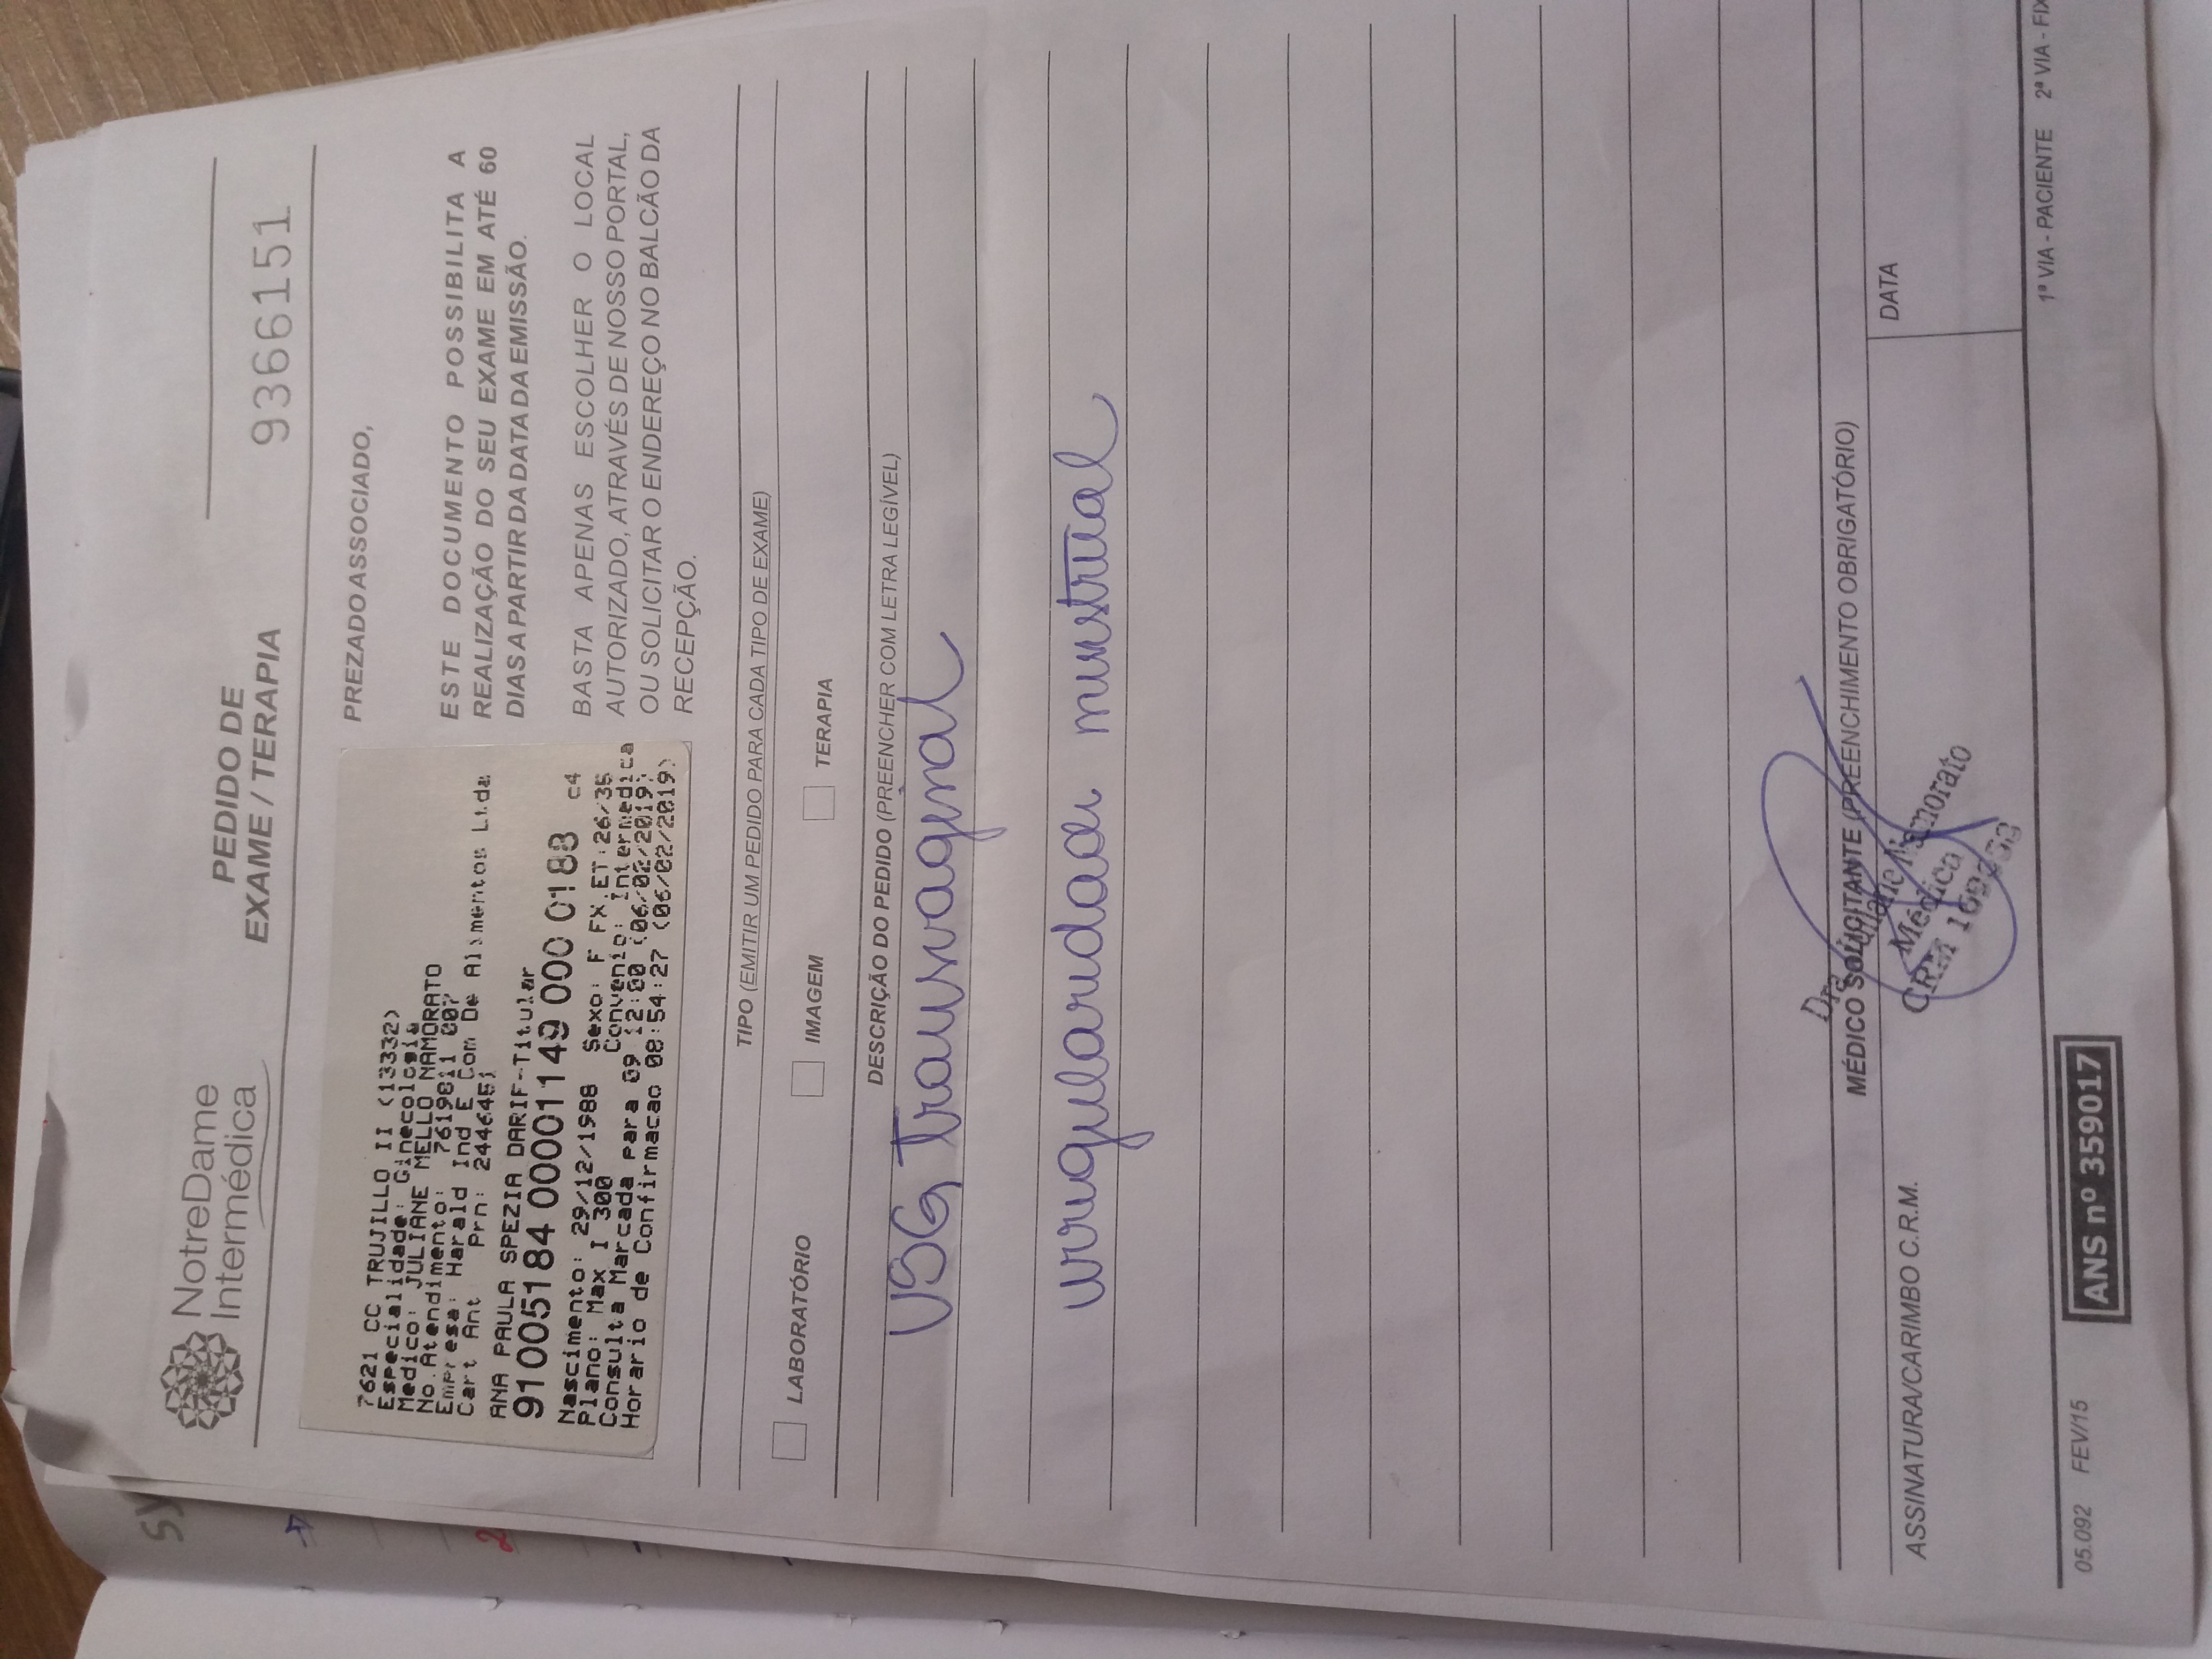 NotreDame
Intermédica
PEDIDO DE
EXAME / TERAPIA
9366151
7621 CC TRUJILLO II (13332)
Especialidade: Ginecologia
Medico: JULIANE MELLO NAMORATO
No.Atendimento: 7619811 007
Empresa: Harald Ind E Com De Alimentos Ltda
Cart Ant Prn: 2446451
ANA PAULA SPEZIA DARIF-Titular
91005184 00001149 000 0188 c4
Nascimento: 29/12/1988 Sexo: F FX.ET:26/35
Plano: Max I 300 Convenio: Intermedica
Consulta Marcada para 09 12:00 (06/02/2019)
Horario de Confirmacao 08:54:27 (06/02/2019)
PREZADO ASSOCIADO,
ESTE DOCUMENTO POSSIBILITA A
REALIZAÇÃO DO SEU EXAME EM ATÉ 60
DIAS A PARTIR DA DATA DA EMISSÃO.
BASTA APENAS ESCOLHER O LOCAL
AUTORIZADO, ATRAVÉS DE NOSSO PORTAL,
OU SOLICITAR O ENDEREÇO NO BALCÃO DA
RECEPÇÃO.
TIPO (EMITIR UM PEDIDO PARA CADA TIPO DE EXAME)
LABORATÓRIO IMAGEM TERAPIA
DESCRIÇÃO DO PEDIDO (PREENCHER COM LETRA LEGÍVEL)
USG Transvaginal
irregularidade menstrual
MÉDICO SOLICITANTE (PREENCHIMENTO OBRIGATÓRIO)
ASSINATURA/CARIMBO C.R.M.
Dra. Juliane Namorato
Médica
CRM
DATA
1ª VIA - PACIENTE 2ª VIA -
05.092 FEV/15
ANS nº 359017